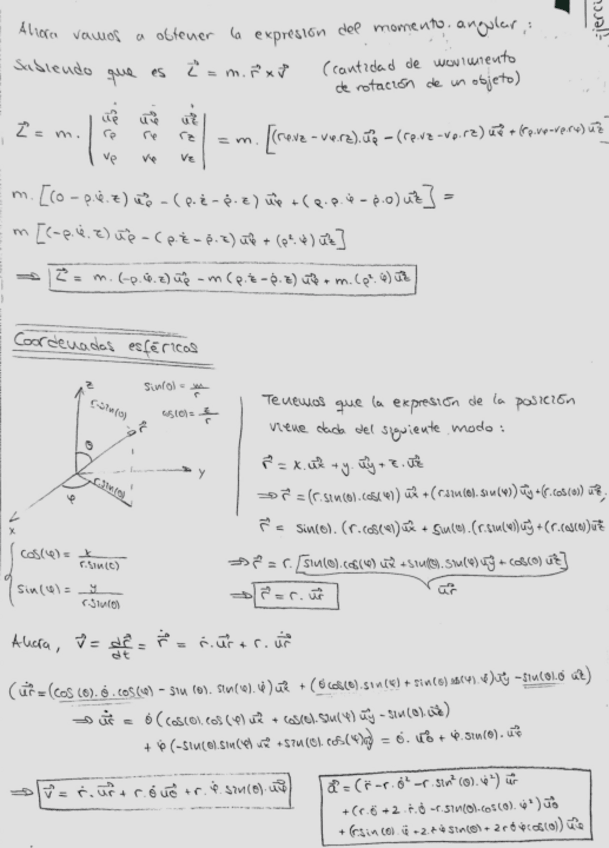 Ahora vamos a obtener la expresión del momento angular:
Sabiendo que es L⃗ = m. r⃗ x v⃗ (cantidad de movimiento
de rotación de un objeto)
L⃗ = m. | uρ⃗ uφ⃗ uz⃗ ; rρ rφ rz ; vρ vφ vz | = m. [(rφ.vz - vφ.rz).uρ⃗ - (rρ.vz - vρ.rz) uφ⃗ + (rρ.vφ - vρ.rφ) uz⃗]
m. [(0 - ρ.φ̇.z) uρ⃗ - (ρ.ż - ρ̇.z) uφ⃗ + (ρ.ρ.φ̇ - ρ̇.0) uz⃗] =
m [(-ρ.φ̇.z) uρ⃗ - (ρ.ż - ρ̇.z) uφ⃗ + (ρ².φ̇) uz⃗]
⇒ L⃗ = m. (-ρ.φ̇.z) uρ⃗ - m (ρ.ż - ρ̇.z) uφ⃗ + m. (ρ².φ̇) uz⃗
Coordenadas esféricas
z
r.sin(θ)
sin(θ) = m/r
cos(θ) = z/r
r⃗
θ
y
r.sin(θ)
φ
x
cos(φ) = x / r.sin(θ)
sin(φ) = y / r.sin(θ)
Tenemos que la expresión de la posición
viene dada del siguiente modo:
r⃗ = x.ux⃗ + y.uy⃗ + z.uz⃗
⇒ r⃗ = (r.sin(θ).cos(φ)) ux⃗ + (r.sin(θ).sin(φ)) uy⃗ + (r.cos(θ)) uz⃗
r⃗ = sin(θ).(r.cos(φ)) ux⃗ + sin(θ).(r.sin(φ)) uy⃗ + (r.cos(θ)) uz⃗
⇒ r⃗ = r. [sin(θ).cos(φ) ux⃗ + sin(θ).sin(φ) uy⃗ + cos(θ) uz⃗]
ur⃗
⇒ r⃗ = r. ur⃗
Ahora, v⃗ = dr⃗/dt = ṙ⃗ = ṙ.ur⃗ + r. u̇r⃗
(u̇r⃗ = (cos(θ).θ̇.cos(φ) - sin(θ).sin(φ).φ̇) ux⃗ + (θ̇cos(θ).sin(φ) + sin(θ).cos(φ).φ̇) uy⃗ - sin(θ).θ̇ uz⃗)
⇒ u̇r⃗ = θ̇ (cos(θ).cos(φ) ux⃗ + cos(θ).sin(φ) uy⃗ - sin(θ).uz⃗)
+ φ̇ (-sin(θ).sin(φ) ux⃗ + sin(θ).cos(φ) uy⃗) = θ̇. uθ⃗ + φ̇.sin(θ). uφ⃗
⇒ v⃗ = ṙ.ur⃗ + r.θ̇ uθ⃗ + r.φ̇.sin(θ).uφ⃗
a⃗ = (r̈ - r.θ̇² - r.sin²(θ).φ̇²) ur⃗
+ (r.θ̈ + 2.ṙ.θ̇ - r.sin(θ).cos(θ).φ̇²) uθ⃗
+ (r.sin(θ).φ̈ + 2.ṙ.φ̇ sin(θ) + 2rθ̇φ̇cos(θ)) uφ⃗